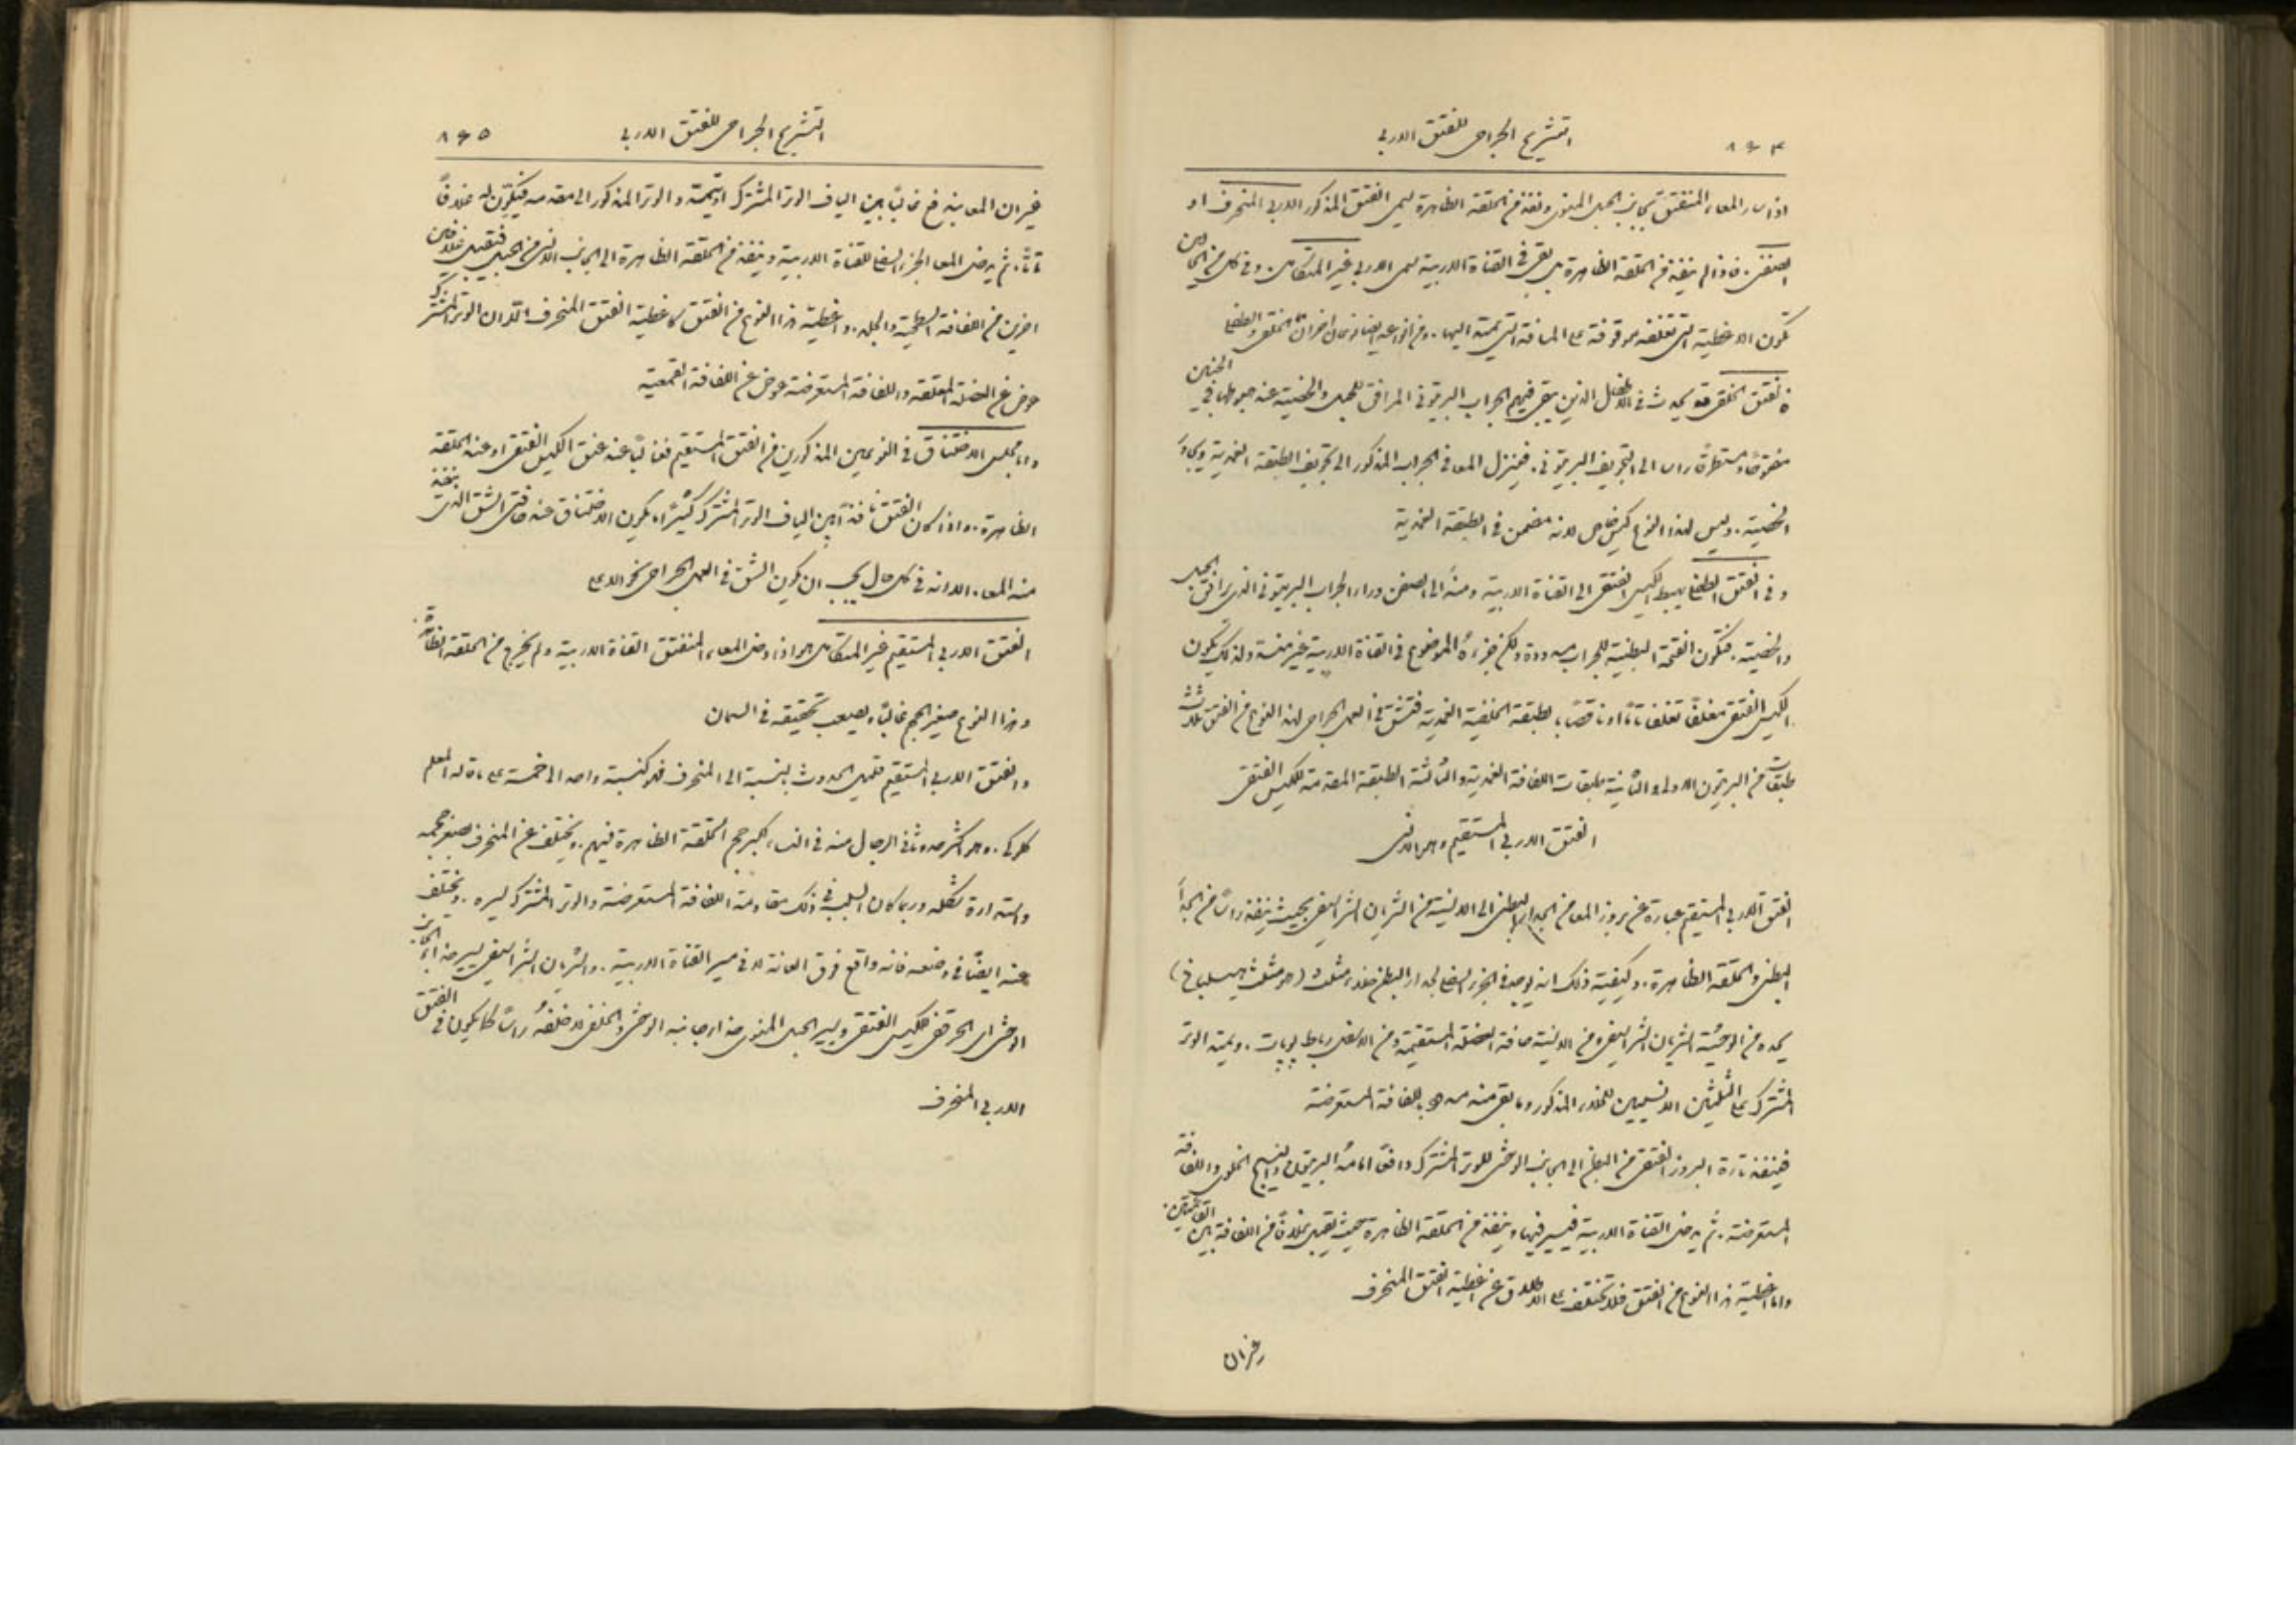 ٨٦٤ التشريح الجراحي للفتق الاربي
اذا سار المعاء المنفتق بجانب الحبل المنوي ونفذ من الحلقة الظاهرة سمي الفتق المذكور الاربي المنحرف او
الصفني. فاذا لم ينفذ من الحلقة الظاهرة بل بقي في القناة الاربية سمي الاربي غير المتكامل. وفي كل من الحالين
تكون الاغطية التي تغلفه موقوفة على المسافة التي يمتد اليها. ومن انواعه ايضا نوعان اخران الخلقي والطفلي
فالفتق الخلقي قد يحدث في الاطفال الذين يبقى فيهم الجراب البريتوني المرافق للحبل والخصية عند هبوطها في الجنين
مفتوحًا ومستطرقًا راسا الى التجويف البريتوني. فينزل المعا في الجراب المذكور الى تجويف الطبقة الغمدية ويجاور
الخصية. وليس لهذا النوع كيس خاص لانه مضمن في الطبقة الغمدية
وفي الفتق الطفلي يهبط الكيس الفتقي الى القناة الاربية ومنها الى الصفن وراء الجراب البريتوني الذي يرافق الحبل
والخصية. فتكون الفتحة البطنية للجراب مسدودة ولكن جزءه الموضوع في القناة الاربية غير منسد ولذلك يكون
الكيس الفتقي مغلفًا تغلفا تامًا او ناقصًا بالطبقة الخلفية الغمدية فتشق في العمل الجراحي لهذا النوع من الفتق ثلاث
طبقات من البريتون الاولى والثانية طبقات اللفافة الغمدية والثالثة الطبقة المقدمة للكيس الفتقي
الفتق الاربي المستقيم وهو الانسي
الفتق الاربي المستقيم عبارة عن بروز المعا من الجدار البطني الى الانسية من الشريان الشراسيفي بحيث ينفذ راسًا من الجدار
البطني والحلقة الظاهرة. وكيفية ذلك انه يوجد في الجزء السفلي لجدار البطن خلاء مثلث (هو مثلث هيسلباخ)
يحده من الوحشية الشريان الشراسيفي ومن الانسية حافة العضلة المستقيمة ومن الاسفل رباط پوپارت. ويمتد الوتر
المشترك على الثلثين الانسيين للخلاء المذكور وما بقي منه مسدود باللفافة المستعرضة
فينفذ تارة البروز الفتقي من البطن الى الجانب الوحشي للوتر المشترك دافعًا امامه البريتون والنسيج الخلوي واللفافة
المستعرضة. ثم يدخل القناة الاربية فيسير فيها وينفذ من الحلقة الظاهرة حيث يقبل غلافًا من اللفافة بين القائمتين.
واما اغطية هذا النوع من الفتق فلا تختلف على الاطلاق عن اغطية الفتق المنحرف
غير ان
التشريح الجراحي للفتق الاربي ٨٦٥
غير ان المعا يندفع غالبًا بين الياف الوتر المشترك او يمتد والوتر المذكور الى مقدمه فيتكون له غلافًا
تامًا. ثم يدخل المعا الجزء السفلي للقناة الاربية وينفذ من الحلقة الظاهرة الى الجانب الانسي من الحبل فيقبل غلافين
اخرين من اللفافة السطحية والجلد. واغطية هذا النوع من الفتق كاغطية الفتق المنحرف الا ان الوتر المشترك
عوض عن العضلة المعلقة واللفافة المستعرضة عوض عن اللفافة القمعية
واما مجلس الاختناق في النوعين المذكورين من الفتق المستقيم فغالبًا عند عنق الكيس الفتقي او عند الحلقة
الظاهرة. واذا كان الفتق نافذًا بين الياف الوتر المشترك كثيرًا ما يكون الاختناق عند حافتي الشق الذي ينفذ
منه المعا. الا انه في كل حال يجب ان يكون الشق في العمل الجراحي نحو الاعلى
الفتق الاربي المستقيم غير المتكامل هو اذا دخل المعاء المنفتق القناة الاربية ولم يخرج من الحلقة الظاهرة.
وهذا النوع صغير الحجم غالبًا ويصعب تحقيقه في السمان
والفتق الاربي المستقيم قليل الحدوث بالنسبة الى المنحرف فهو كنسبة واحد الى خمسة على ما قاله المعلم
كلوكي. وهو اكثر حدوثًا في الرجال منه في النساء لكبر حجم الحلقة الظاهرة فيهم. ويختلف عن المنحرف بصغر حجمه
واستدارة شكله وربما كان السبب في ذلك مقاومة اللفافة المستعرضة والوتر المشترك لسيره. ويختلف
عنه ايضًا في وضعه فانه واقع فوق العانة لا في مسير القناة الاربية. والشريان الشراسيفي يسير حذاء الجانب
الوحشي اي الحرقفي للكيس الفتقي ويسير الحبل المنوي حذاء جانبه الوحشي والخلفي لا خلفه راسًا كما يكون في الفتق
الاربي المنحرف